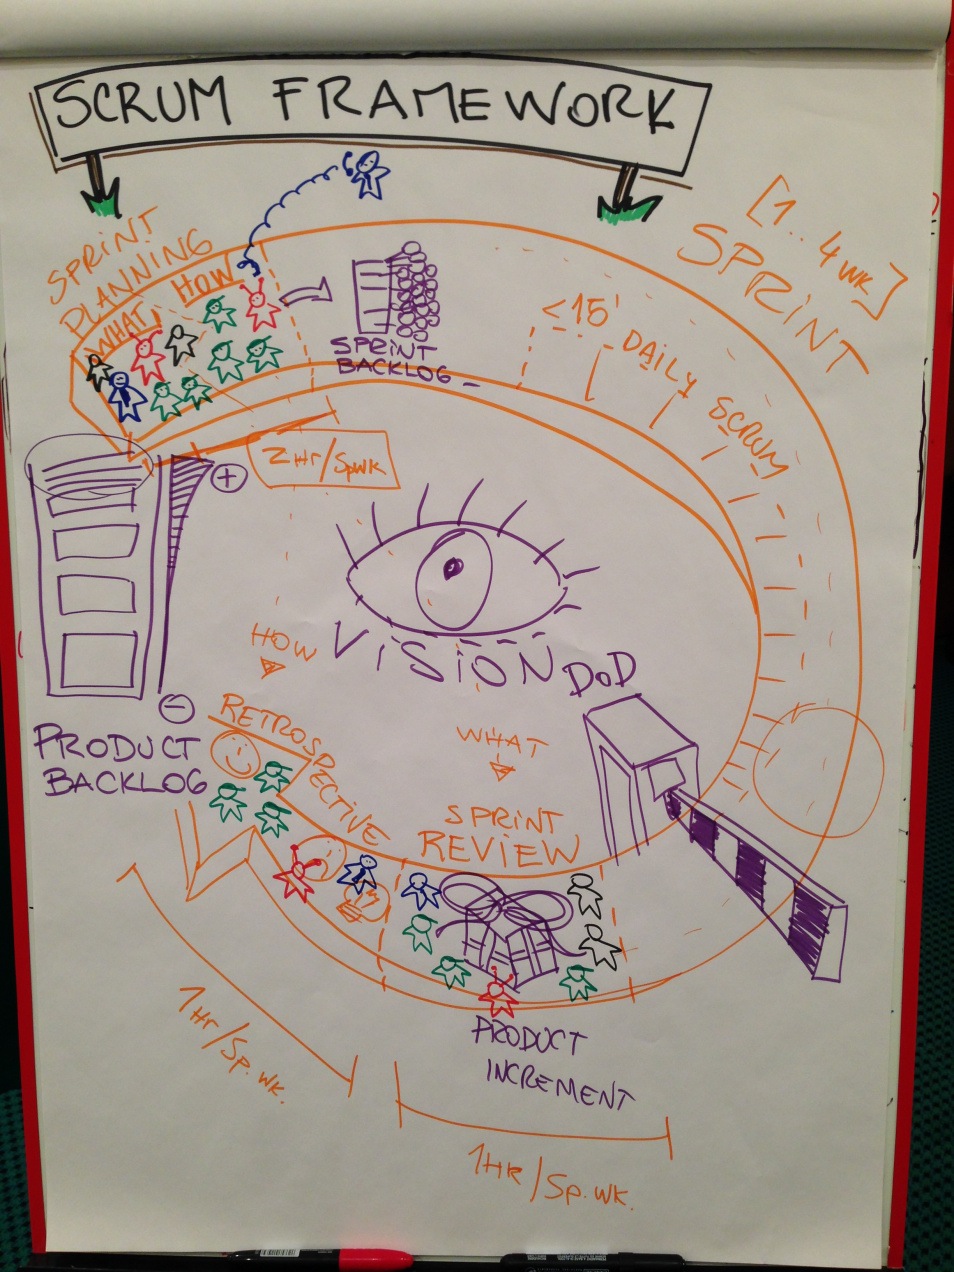 SCRUM FRAMEWORK
[1..4 WK]
SPRINT
SPRINT
PLANNING
WHAT
HOW
SPRINT
BACKLOG
≤15'
DAILY SCRUM
2 Hr/SpWk
+
VISION
DoD
HOW
WHAT
−
PRODUCT
BACKLOG
RETROSPECTIVE
SPRINT
REVIEW
PRODUCT
INCREMENT
1Hr/Sp.WK.
1HR/Sp.WK.